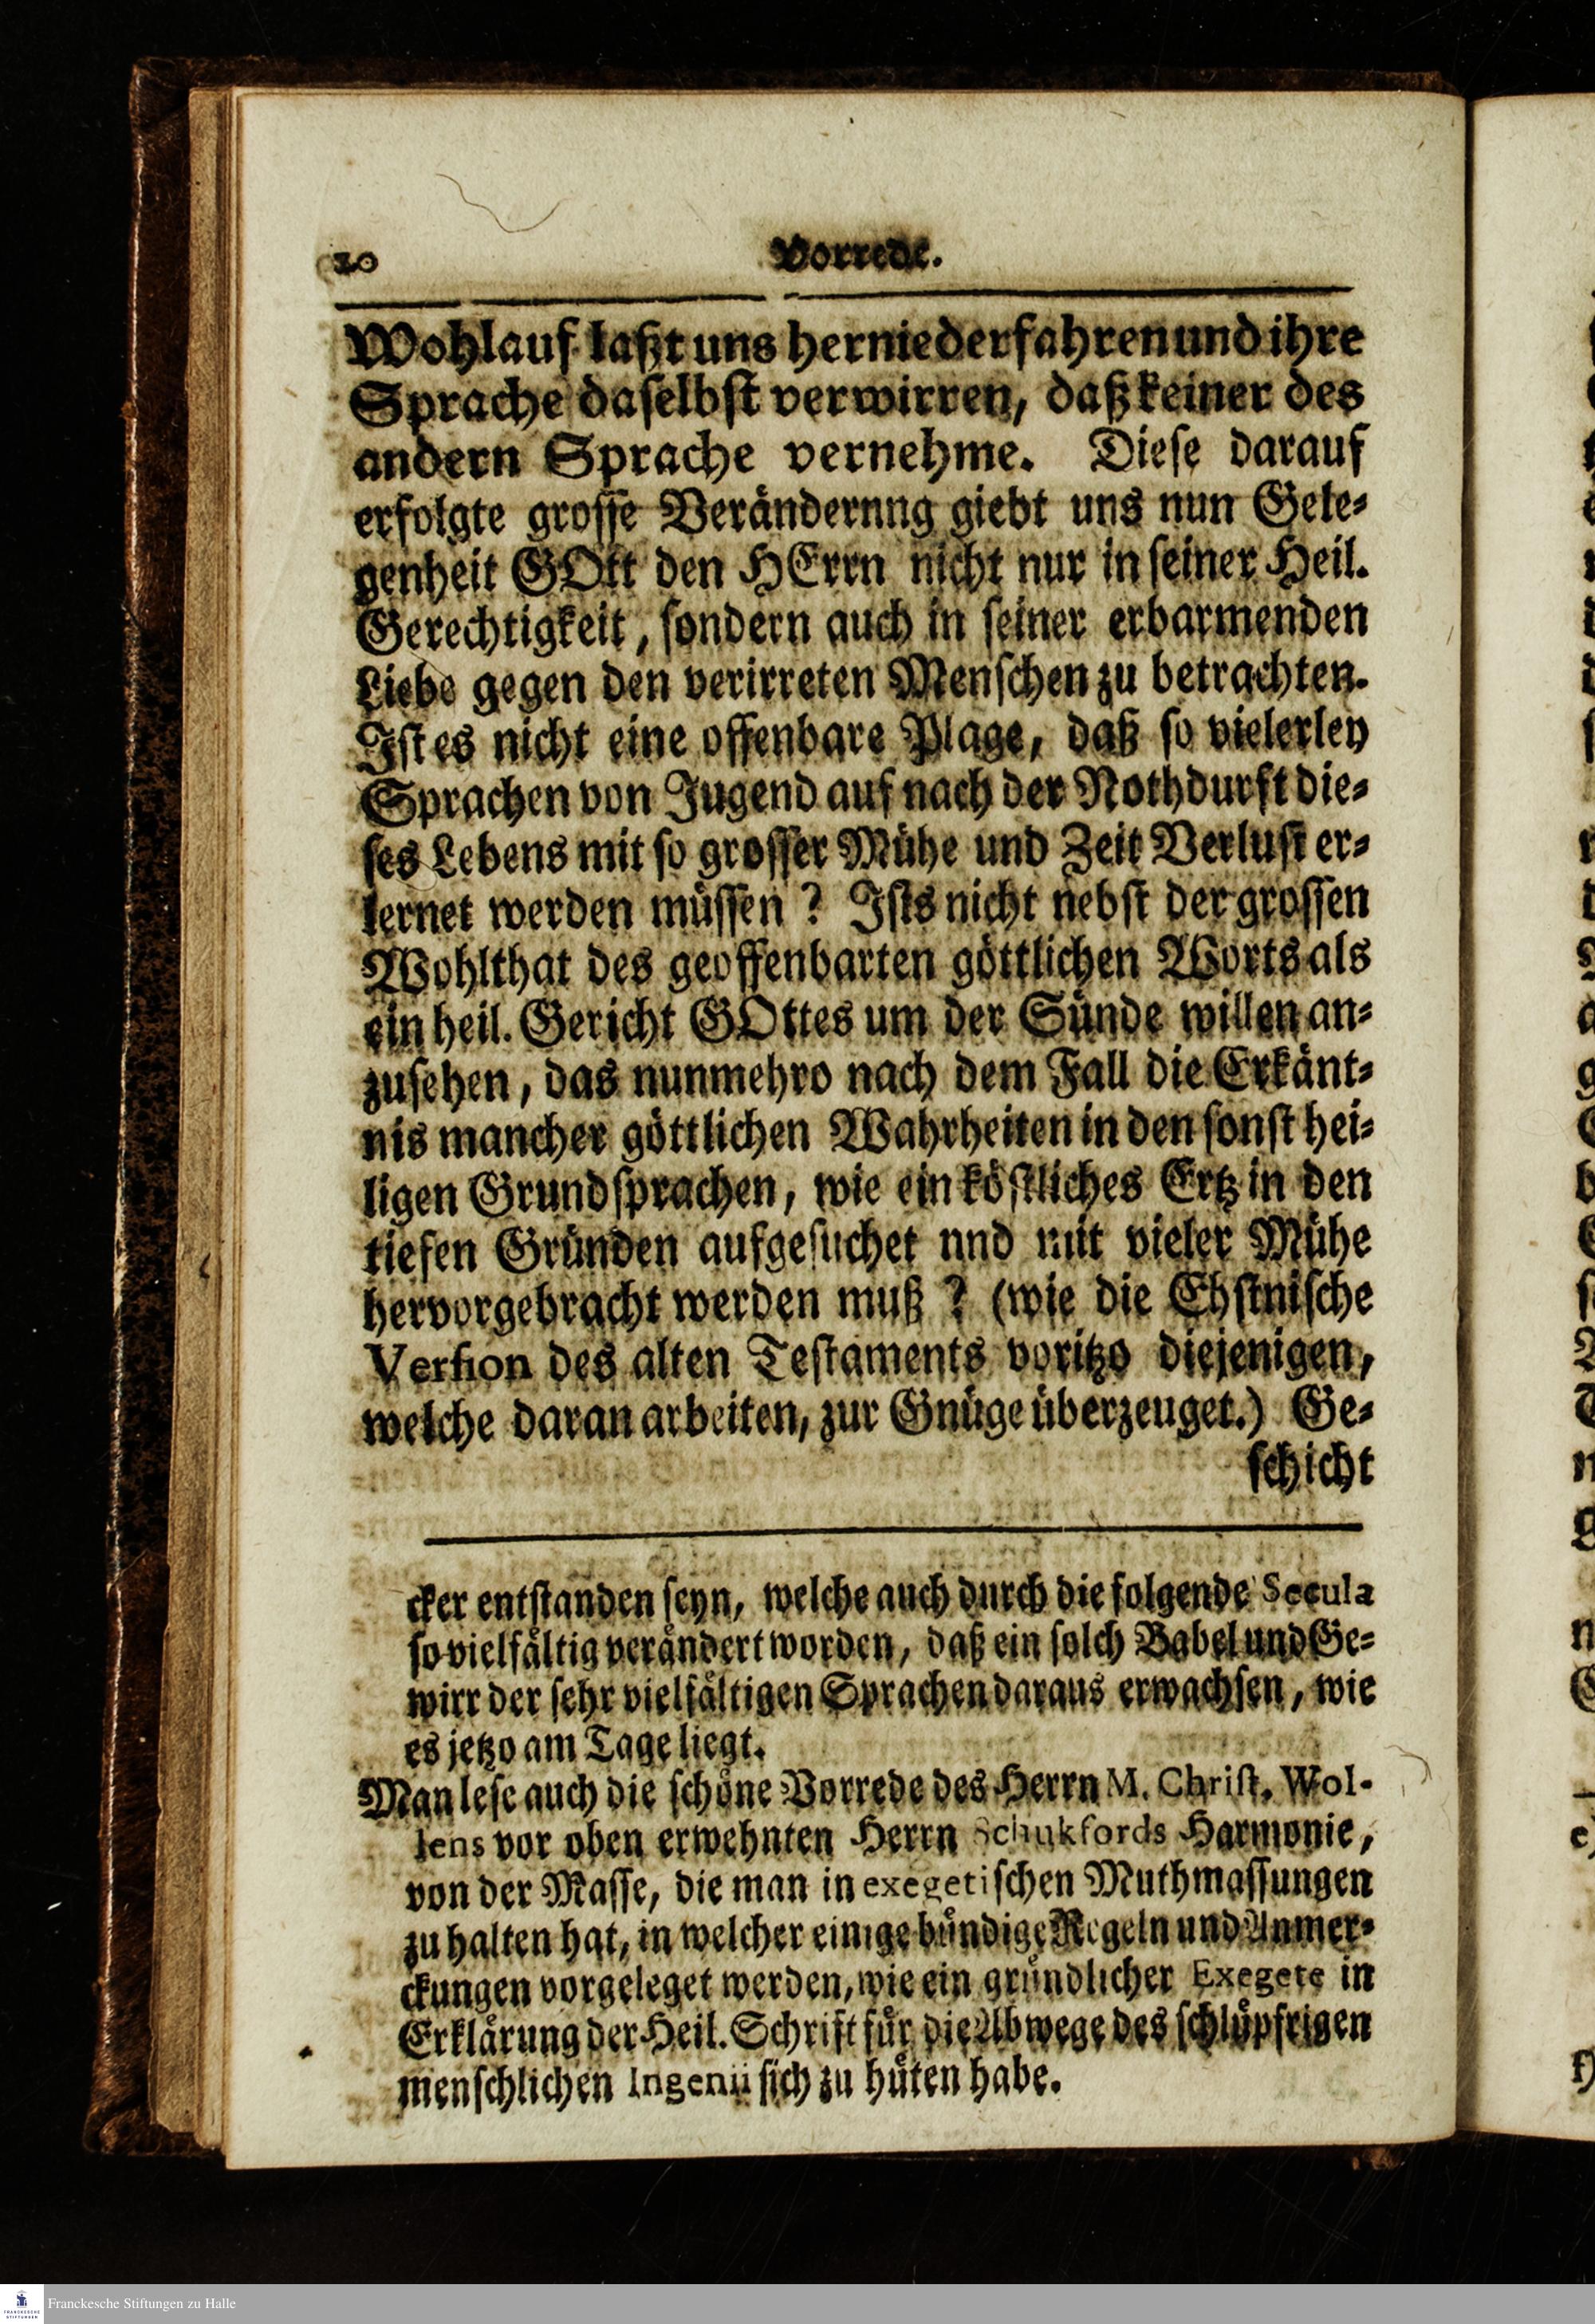 20
Vorrede.
Wohlauf laßt uns herniederfahren und ihre
Sprache daselbst verwirren, daß keiner des
andern Sprache vernehme. Diese darauf
erfolgte grosse Verändernng giebt uns nun Gele⸗
genheit GOtt den HErrn nicht nur in seiner Heil.
Gerechtigkeit, sondern auch in seiner erbarmenden
Liebe gegen den verirreten Menschen zu betrachten.
Ist es nicht eine offenbare Plage, daß so vielerley
Sprachen von Jugend auf nach der Nothdurft die⸗
ses Lebens mit so grosser Mühe und Zeit Verlust er⸗
lernet werden müssen ? Ists nicht nebst der grossen
Wohlthat des geoffenbarten göttlichen Worts als
ein heil. Gericht GOttes um der Sünde willen an⸗
zusehen, das nunmehro nach dem Fall die Erkänt⸗
nis mancher göttlichen Wahrheiten in den sonst hei⸗
ligen Grundsprachen, wie ein köstliches Ertz in den
tiefen Gründen aufgesuchet nnd mit vieler Mühe
hervorgebracht werden muß ? (wie die Ehstnische
Version des alten Testaments voritzo diejenigen,
welche daran arbeiten, zur Gnüge überzeuget.) Ge⸗
schicht
cker entstanden seyn, welche auch durch die folgende Secula
so vielfältig verändert worden, daß ein solch Babel und Ge⸗
wirr der sehr vielfältigen Sprachen daraus erwachsen, wie
es jetzo am Tage liegt.
Man lese auch die schöne Vorrede des Herrn M. Christ. Wol-
lens vor oben erwehnten Herrn Schukfords Harmonie,
von der Masse, die man in exegetischen Muthmassungen
zu halten hat, in welcher einige bündige Regeln und Anmer⸗
ckungen vorgeleget werden, wie ein gründlicher Exegete in
Erklärung der Heil. Schrift für die Abwege des schlüpfrigen
menschlichen Ingenii sich zu hüten habe.
Franckesche Stiftungen zu Halle